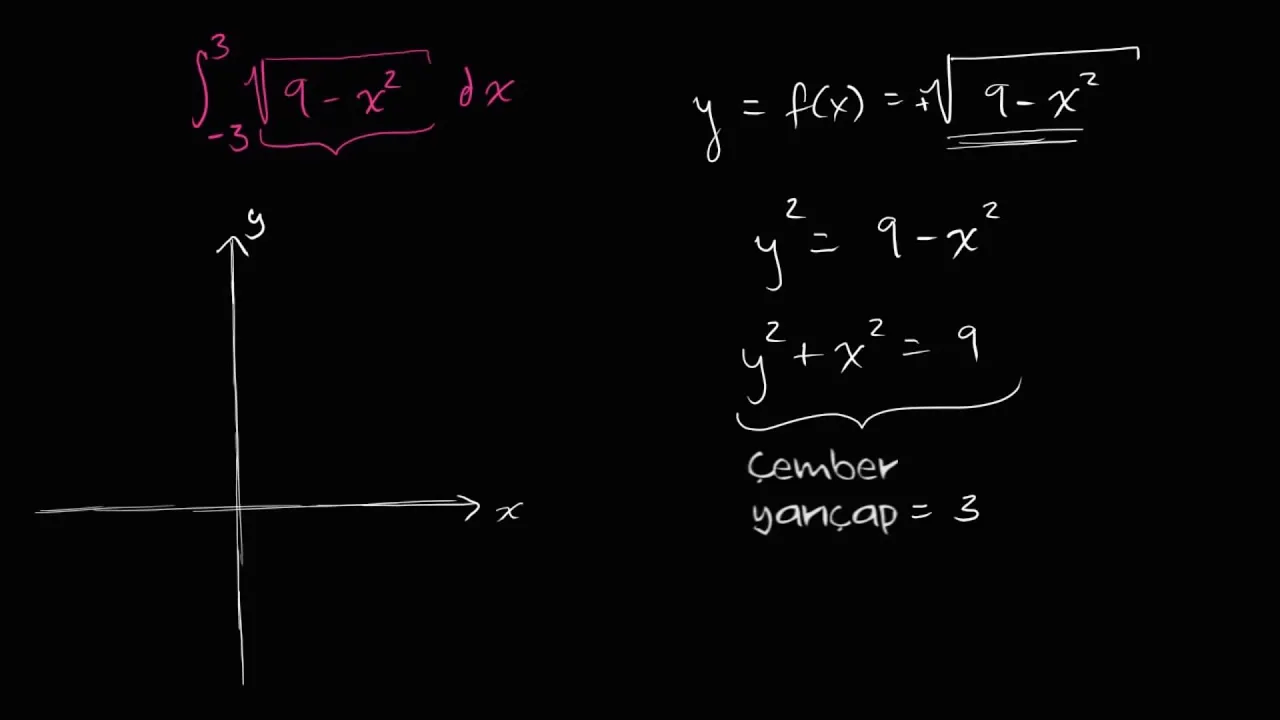 ∫₋₃³ √(9 − x²) dx
y = f(x) = +√(9 − x²)
y² = 9 − x²
y² + x² = 9
çember
yarıçap = 3
y
x